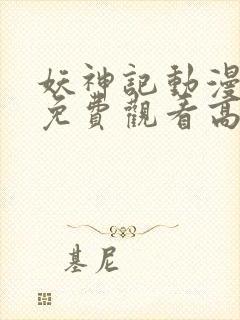 妖神記動漫
免費觀看高
基尼